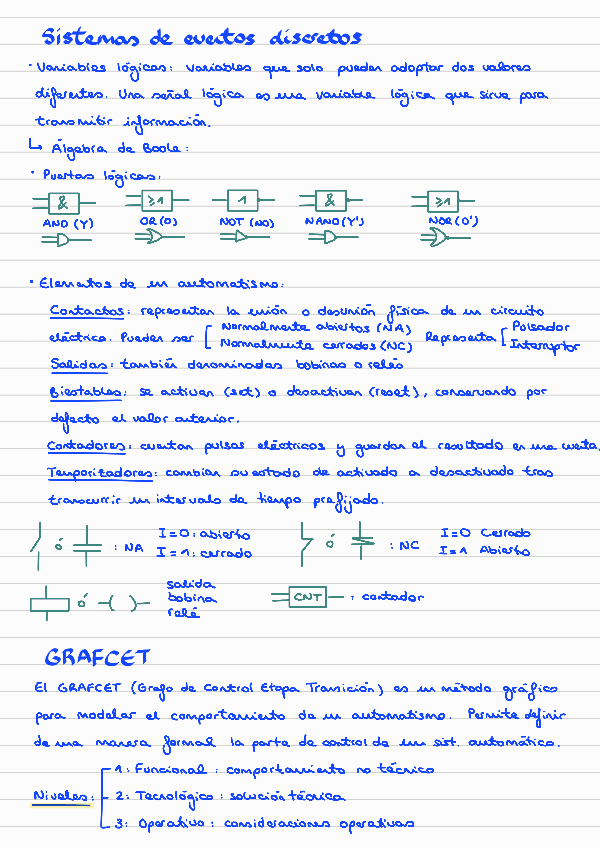 Sistemas de eventos discretos
· Variables lógicas: variables que solo pueden adoptar dos valores
diferentes. Una señal lógica es una variable lógica que sirve para
transmitir información.
↳ Álgebra de Boole:
· Puertas lógicas:
& ≥1 1 & ≥1
AND (Y) OR (O) NOT (NO) NAND (Y') NOR (O')
· Elementos de un automatismo:
Contactos: representan la unión o desunión física de un circuito
eléctrico. Pueden ser [ Normalmente abiertos (NA) Representa [ Pulsador
Normalmente cerrados (NC) Interruptor
Salidas: también denominadas bobinas o relés
Biestables: se activan (set) o desactivan (reset), conservando por
defecto el valor anterior.
Contadores: cuentan pulsos eléctricos y guardan el resultado en una cuenta.
Temporizadores: cambian su estado de activado a desactivado tras
transcurrir un intervalo de tiempo prefijado.
ó : NA I=0: abierto ó : NC I=0 Cerrado
I=1: cerrado I=1 Abierto
ó ( ) salida CNT : contador
bobina
relé
GRAFCET
El GRAFCET (Grafo de Control Etapa Transición) es un método gráfico
para modelar el comportamiento de un automatismo. Permite definir
de una manera formal la parte de control de un sist. automático.
1: Funcional: comportamiento no técnico
Niveles: 2: Tecnológico: solución técnica
3: Operativo: consideraciones operativas